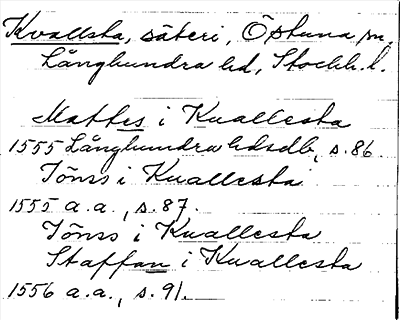 Kvallsta, säteri, Östuna sn,
Långhundra hd, Stockh. l.
Mattes i Kuallesta
1555 Långhundra hdsdb, s. 86.
Jönss i Kuallesta
1555 a.a., s. 87.
Jönss i Kuallesta
Staffan i Kuallesta
1556 a.a., s. 91.